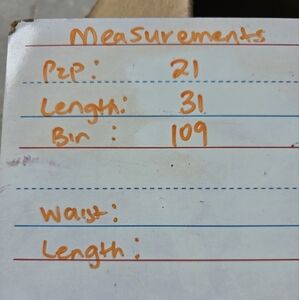 Measurements
P2P: 21
Length: 31
Bin : 109
Waist:
Length: